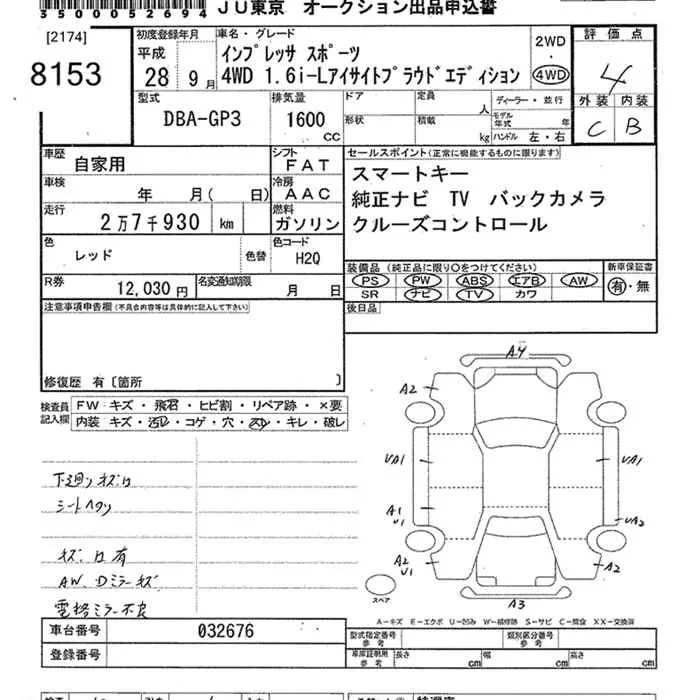 3500052694 JU東京 オークション出品申込書
[2174] 初度登録年月 車名・グレード 評価点
8153 平成 インプレッサ スポーツ 2WD 4
28 9月 4WD 1.6i-Lアイサイトプラウドエディション 4WD
型式 排気量 ドア 定員 人 ディーラー・並行 外装 内装
DBA-GP3 1600 CC 形状 積載 kg モデル年式 年 C B
ハンドル 左・右
車歴 自家用 シフト FAT セールスポイント(正常に機能するものに限ります)
車検 年 月( 日) 冷房 AAC スマートキー
純正ナビ TV バックカメラ
走行 2万7千930 km 燃料 ガソリン クルーズコントロール
色 レッド 色替 色コード H2Q
装備品(純正品に限り○をつけてください) 新車保証書
R券 12,030円 名変通知期限 月 日 PS PW ABS エアB AW 有・無
SR ナビ TV カワ
注意事項申告欄(不具合内容等は具体的に記入して下さい) 後日品
修復歴 有〔箇所 〕
検査員記入欄 FW キズ・飛石・ヒビ割・リペア跡・×要
内装 キズ・汚レ・コゲ・穴・スレ・キレ・破レ
A4
A2
UA1 UA1
A1
U1 UA2
A2
U1 A2
A3
スペア
下廻りキズ
シートヘタリ
キズ 有
AW、Dミラーキズ
電格ミラー不良
A-キズ E-エクボ U-凹み W-補修跡 S-サビ C-腐食 XX-交換済
車台番号 032676 型式指定番号 参考 類別区分番号 参考
登録番号 車庫証明用 参考 長さ cm 幅 cm 高さ cm